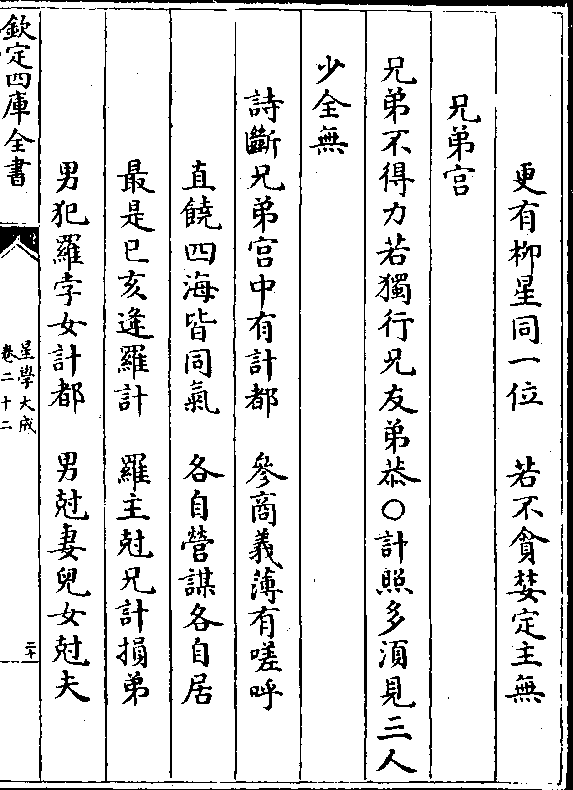 更有柳星同一位　若不貪婪定主無
兄弟宫
兄弟不得力若獨行兄友弟恭○計照多湏見三人
少全無
詩斷兄弟宫中有計都　參商義薄有嗟呼
直饒四海皆同氣　各自營謀各自居
最是巳亥逢羅計　羅主尅兄計損弟
男犯羅孛女計都　男尅妻兒女尅夫
欽定四庫全書
星學大成
卷二十二
二十